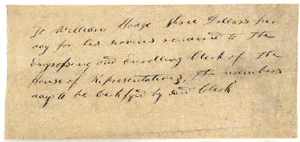 To William Hodge three Dollars per
day for his services rendered to the
Engrossing and Enrolling Clerk of the
House of Representatives, the number
days to be certifyed by said Clerk